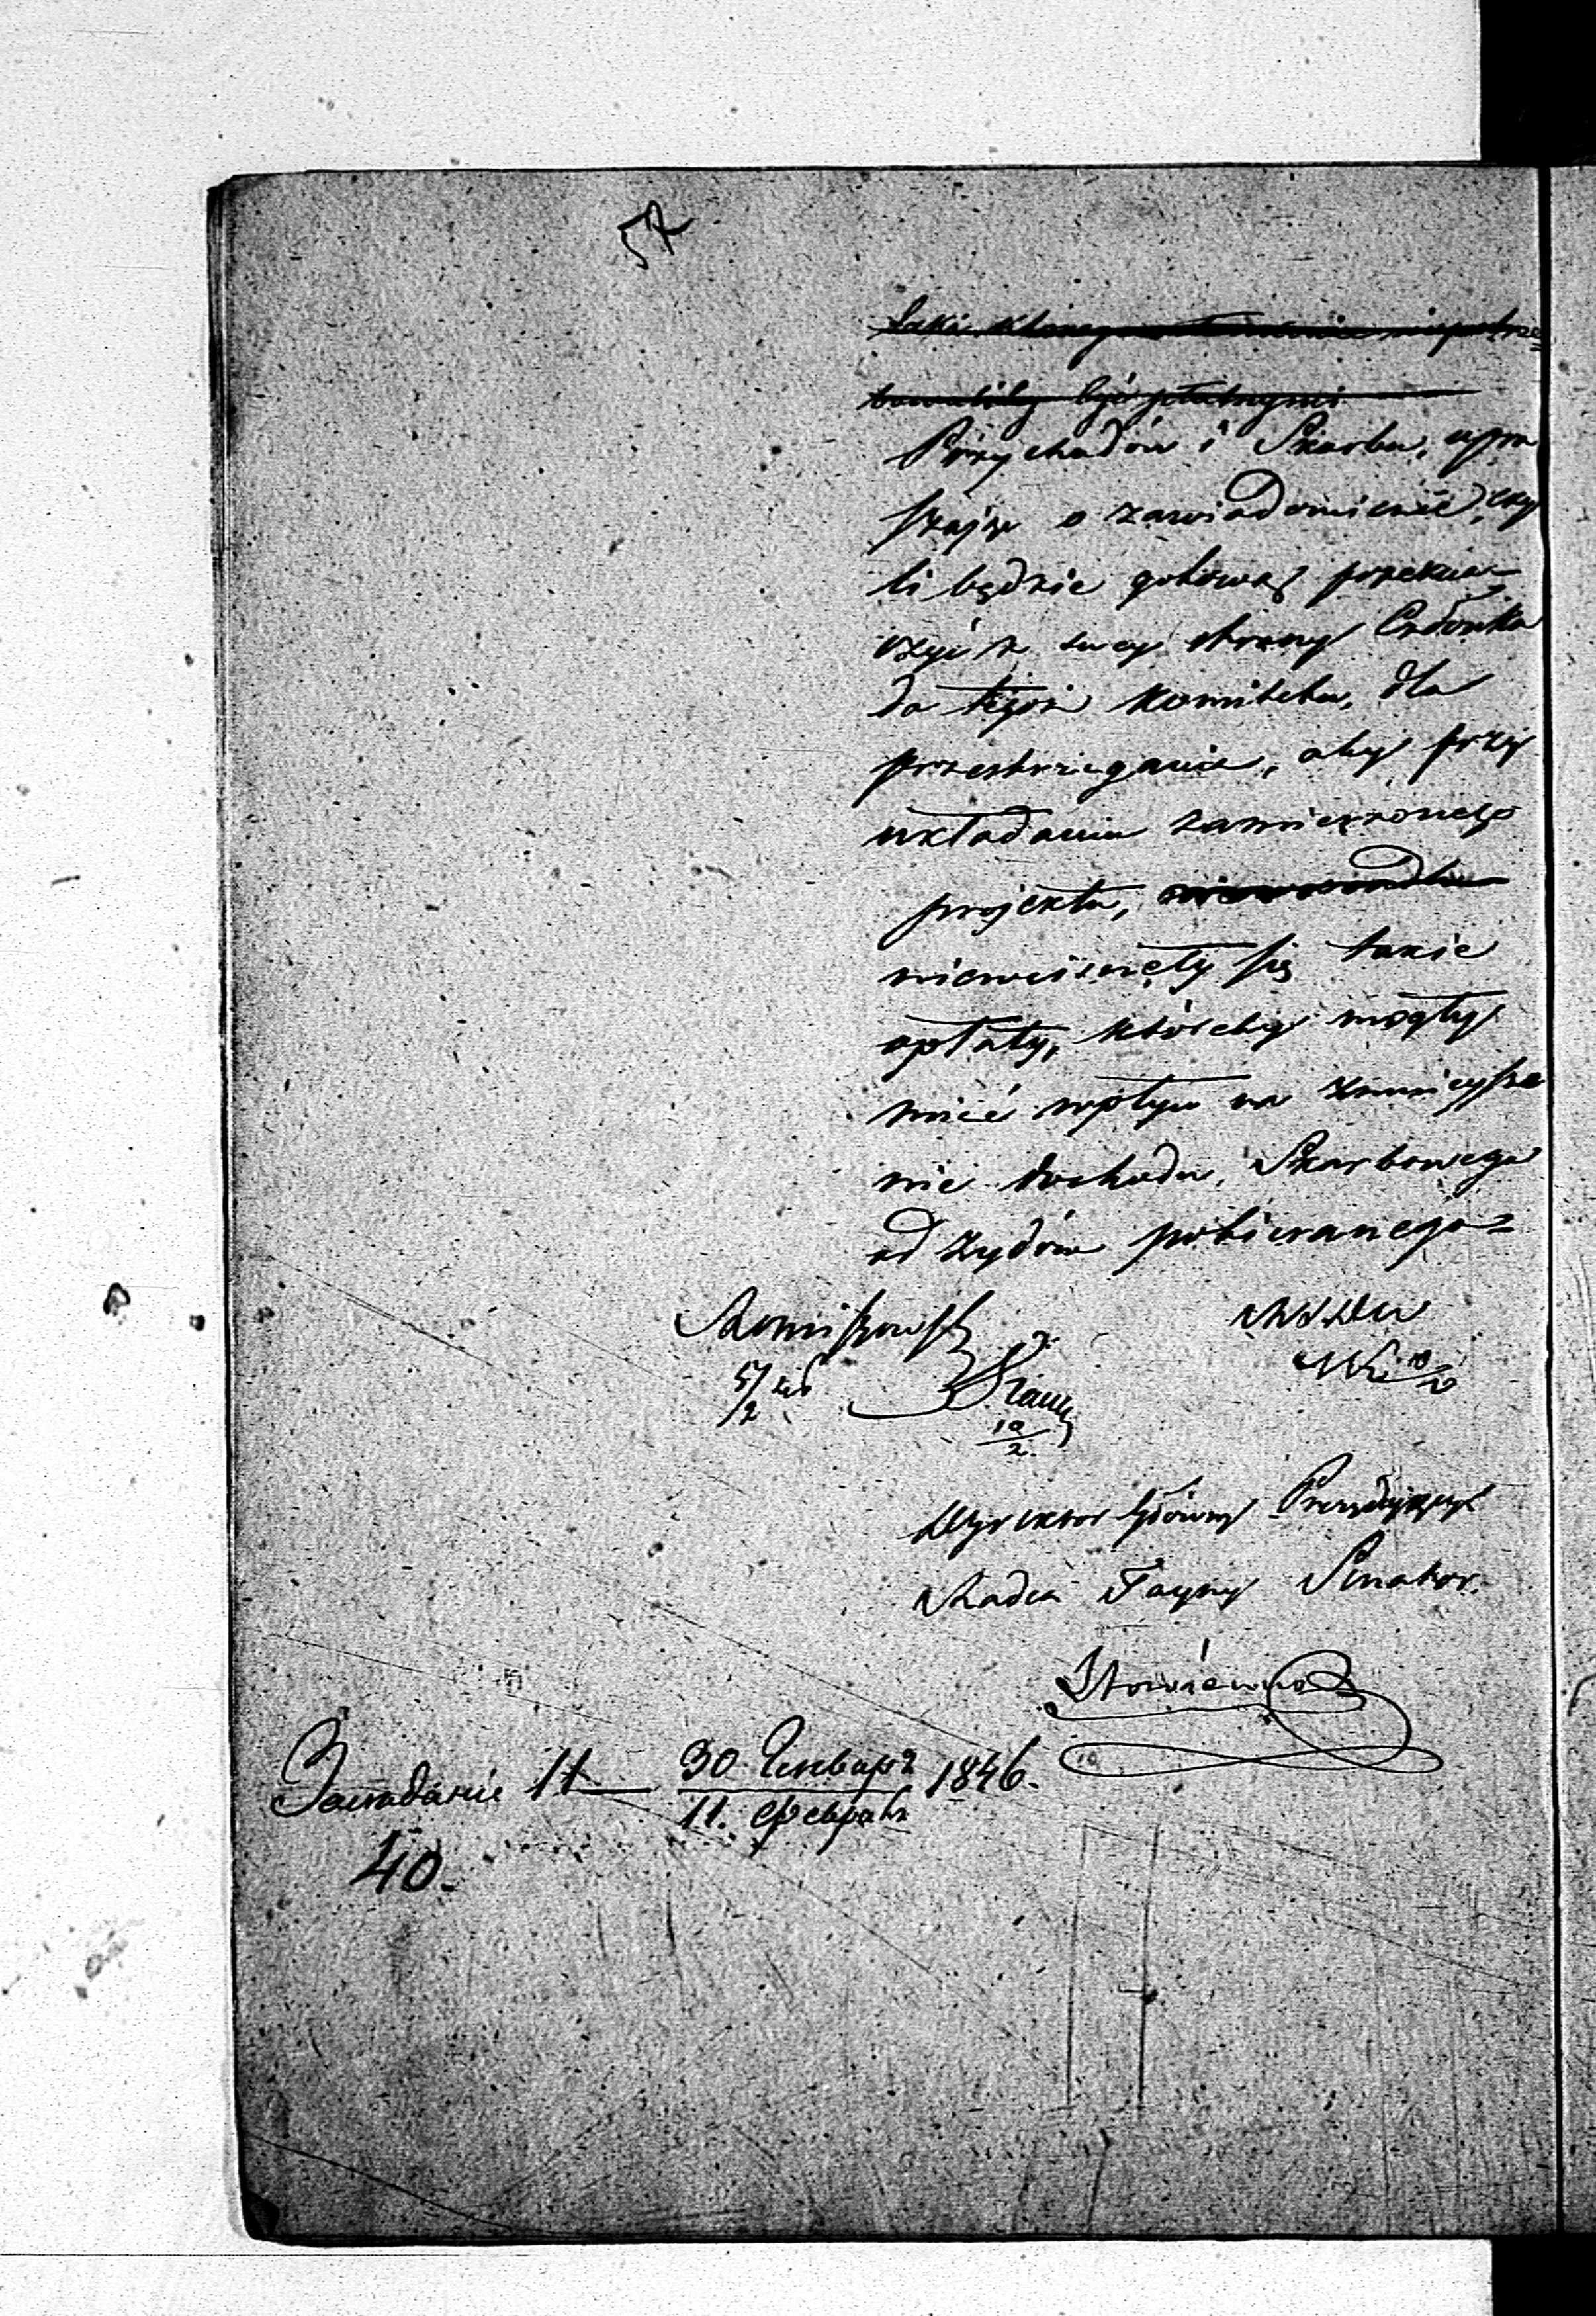 57
Przychodów i Skarbu, upra
szając o zawiadomienie, czy
li będzie gotową przezna-
czyć z swej strony Członka
do tegoż Komitetu, dla
przestrzegania, aby przy
układaniu zamierzonego
projektu,
niewcisnęły się takie
opłaty, któreby mogły
mieć wpływ na zmniejsze
nie dochodu Skarbowego
od Żydów pobieranego
5/2
10/2
Dyrektor Główny Prezydujący
Radca Tayny Senator
Засѣданіе 11 30 Января 1846.
11. Февраля
40.